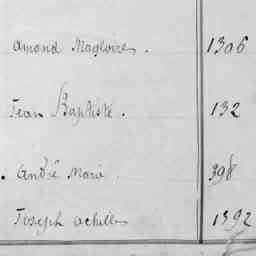 Amand Magloire. 1306
Jean Baptiste. 132
. André Marie 398
Joseph achille 1392